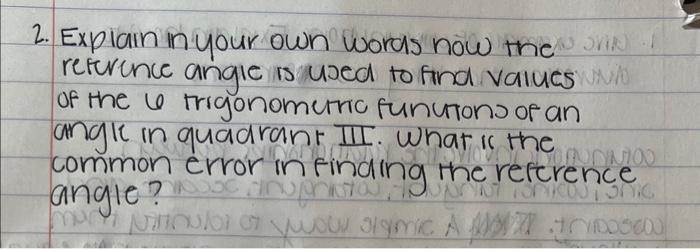 2. Explain in your own words how the
reference angle is used to find values
of the 6 trigonometric functions of an
angle in quadrant III. What is the
common error in finding the reference
angle?